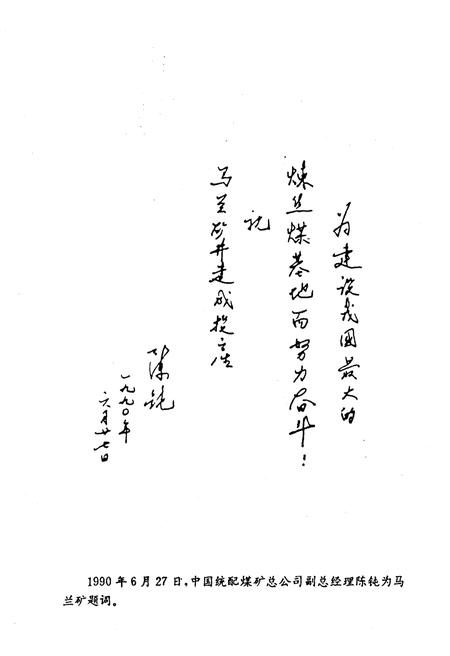 为建设我国最大的
炼焦煤基地而努力奋斗！
祝
马兰矿井建成投产
陈钝
一九九〇年
六月廿七日
1990年6月27日，中国统配煤矿总公司副总经理陈钝为马
兰矿题词。